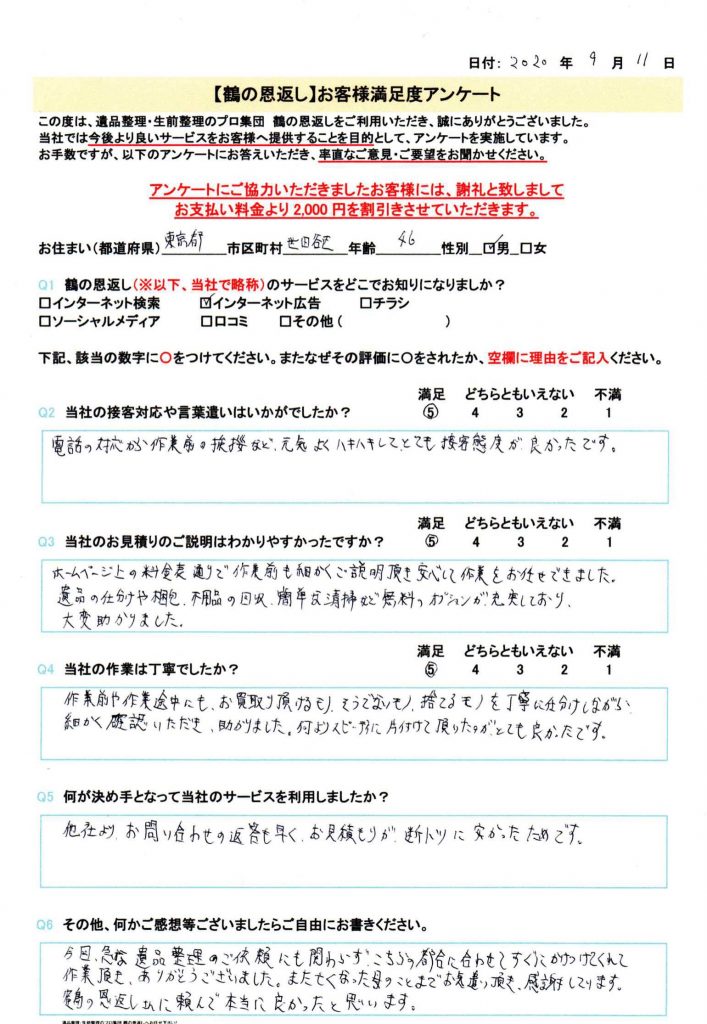 日付: 2020 年 9 月 11 日
【鶴の恩返し】お客様満足度アンケート
この度は、遺品整理・生前整理のプロ集団 鶴の恩返しをご利用いただき、誠にありがとうございました。
当社では今後より良いサービスをお客様へ提供することを目的として、アンケートを実施しています。
お手数ですが、以下のアンケートにお答えいただき、率直なご意見・ご要望をお聞かせください。
アンケートにご協力いただきましたお客様には、謝礼と致しまして
お支払い料金より 2,000 円を割引きさせていただきます。
お住まい(都道府県) 東京都 市区町村 世田谷区 年齢 46 性別 ☑男 □女
Q1 鶴の恩返し(※以下、当社で略称)のサービスをどこでお知りになりましたか?
□インターネット検索 ☑インターネット広告 □チラシ
□ソーシャルメディア □口コミ □その他 ( )
下記、該当の数字に〇をつけてください。またなぜその評価に〇をされたか、空欄に理由をご記入ください。
満足 どちらともいえない 不満
Q2 当社の接客対応や言葉遣いはいかがでしたか? ⑤ 4 3 2 1
電話の対応から作業前の挨拶など、元気よくハキハキして、とても接客態度が良かったです。
満足 どちらともいえない 不満
Q3 当社のお見積りのご説明はわかりやすかったですか? ⑤ 4 3 2 1
ホームページ上の料金表通りで作業前も細かくご説明頂き安心して作業をお任せできました。
遺品の仕分けや梱包、不用品の回収、簡単な清掃など無料のオプションが充実しており、
大変助かりました。
満足 どちらともいえない 不満
Q4 当社の作業は丁寧でしたか? ⑤ 4 3 2 1
作業前や作業途中にも、お買取り頂けるモノ、そうでないモノ、捨てるモノを丁寧に仕分けしながら、
細かく確認いただき、助かりました。何よりスピーディに片付けて頂いたのがとても良かったです。
Q5 何が決め手となって当社のサービスを利用しましたか?
他社より、お問い合わせの返答も早く、お見積もりが、断トツに安かったためです。
Q6 その他、何かご感想等ございましたらご自由にお書きください。
今回、急な遺品整理のご依頼にも関わらず、こちらの都合に合わせてすぐにかけつけてくれて
作業頂き、ありがとうございました。また亡くなった母のことまでお気遣い頂き、感謝しています。
鶴の恩返しさんに頼んで本当に良かったと思います。